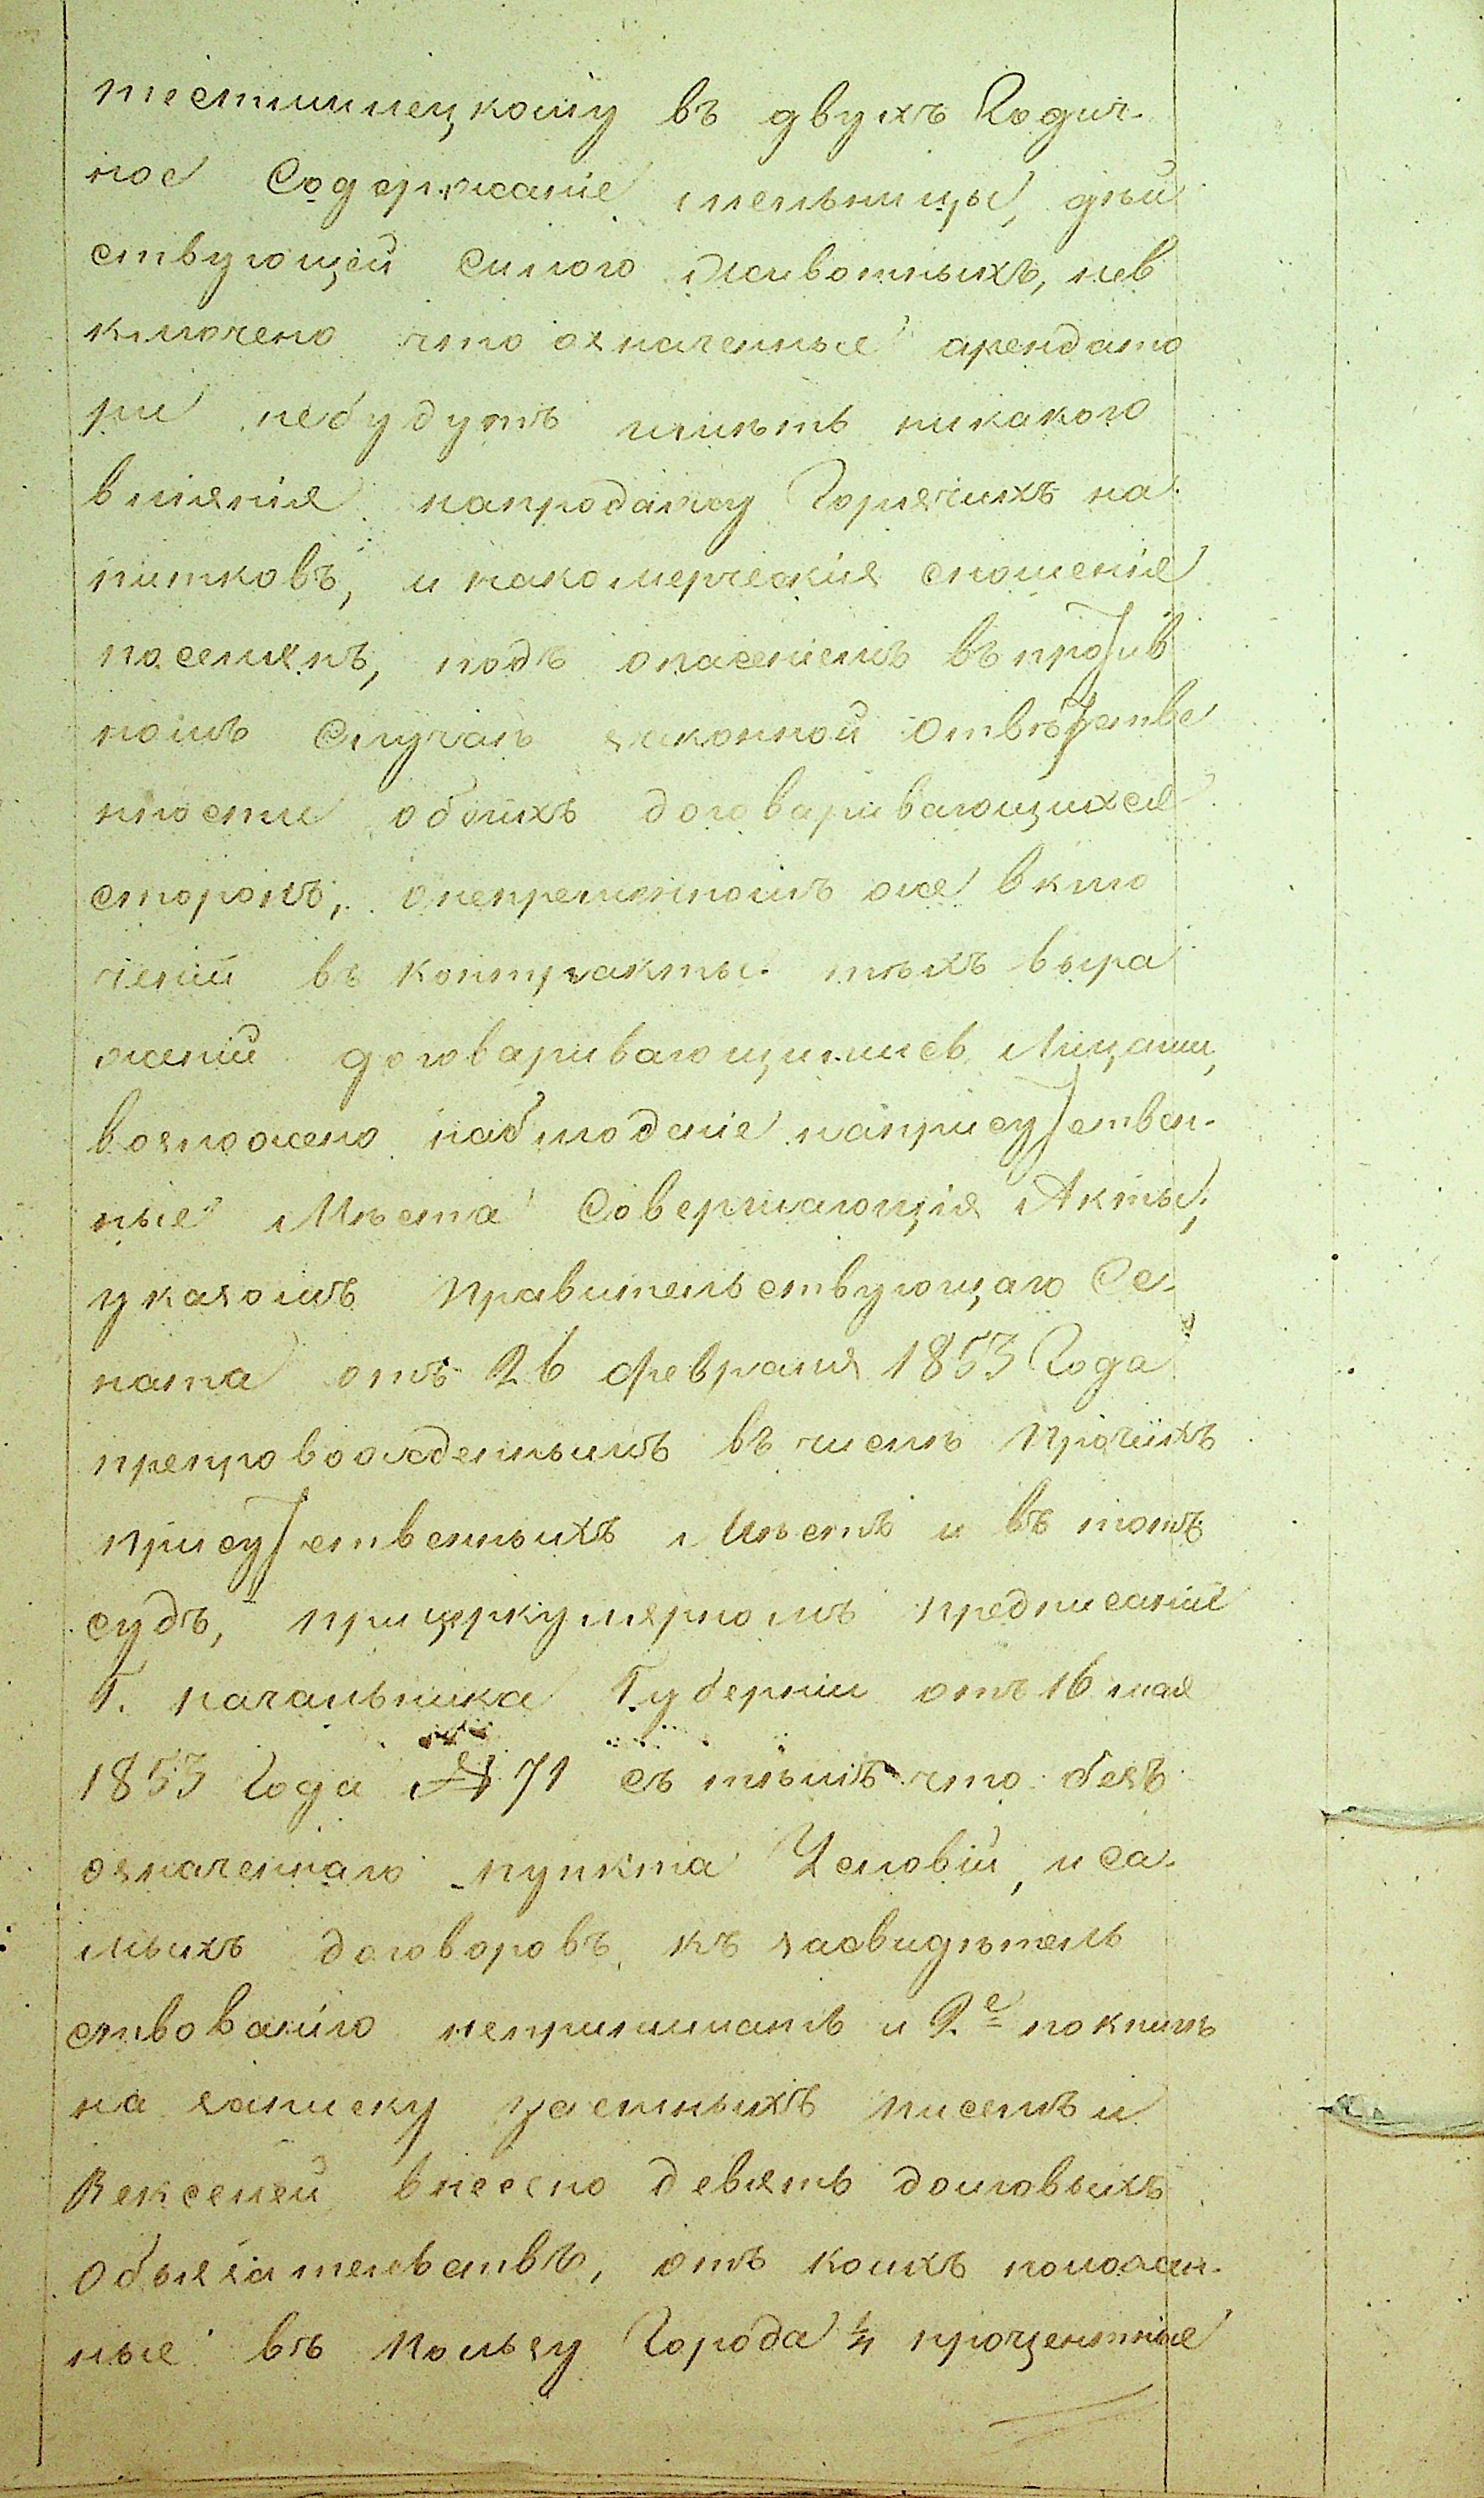 тестинецкому въ двухъ Годич-
ное Содержаніе мельницы, дѣй
ствующей силою животныхъ, нев
ключено что означенные арендато
ри небудутъ имѣть никакого
вліянія напродажу Горячихъ на-
питковъ, и накомерческія сношенія
поселянъ, подъ опасеніемъ въ против
номъ Случаѣ законной отвѣтстве
нности обоихъ договаривающихся
сторонъ, о непременномъ же вклю
ченіи въ контракты тѣхъ выра
женій договаривающимись Лицами,
возложено наблюденіе наприсутствен-
ные Мѣста Совершающія Акты,
указомъ Правительствующаго Се-
ната отъ 26 февраля 1853 Года
препровожденнымъ въ числѣ Прочихъ
Присутственныхъ Мѣстъ и въ тотъ
судъ, при циркулярномъ предписаніи
Г. начальника Губерніи отъ 16 мая
1853 Года № 71 съ тѣмъ что безъ
означеннаго пункта Условій, и са-
мыхъ договоровъ къ засвидѣтель
ствованію непринимать и 2е по книгѣ
на записку заемныхъ писемъ и
Векселей внесено девять долговыхъ
Обязательствъ, отъ коихъ положен-
ные въ Пользу Города ¼ процентные